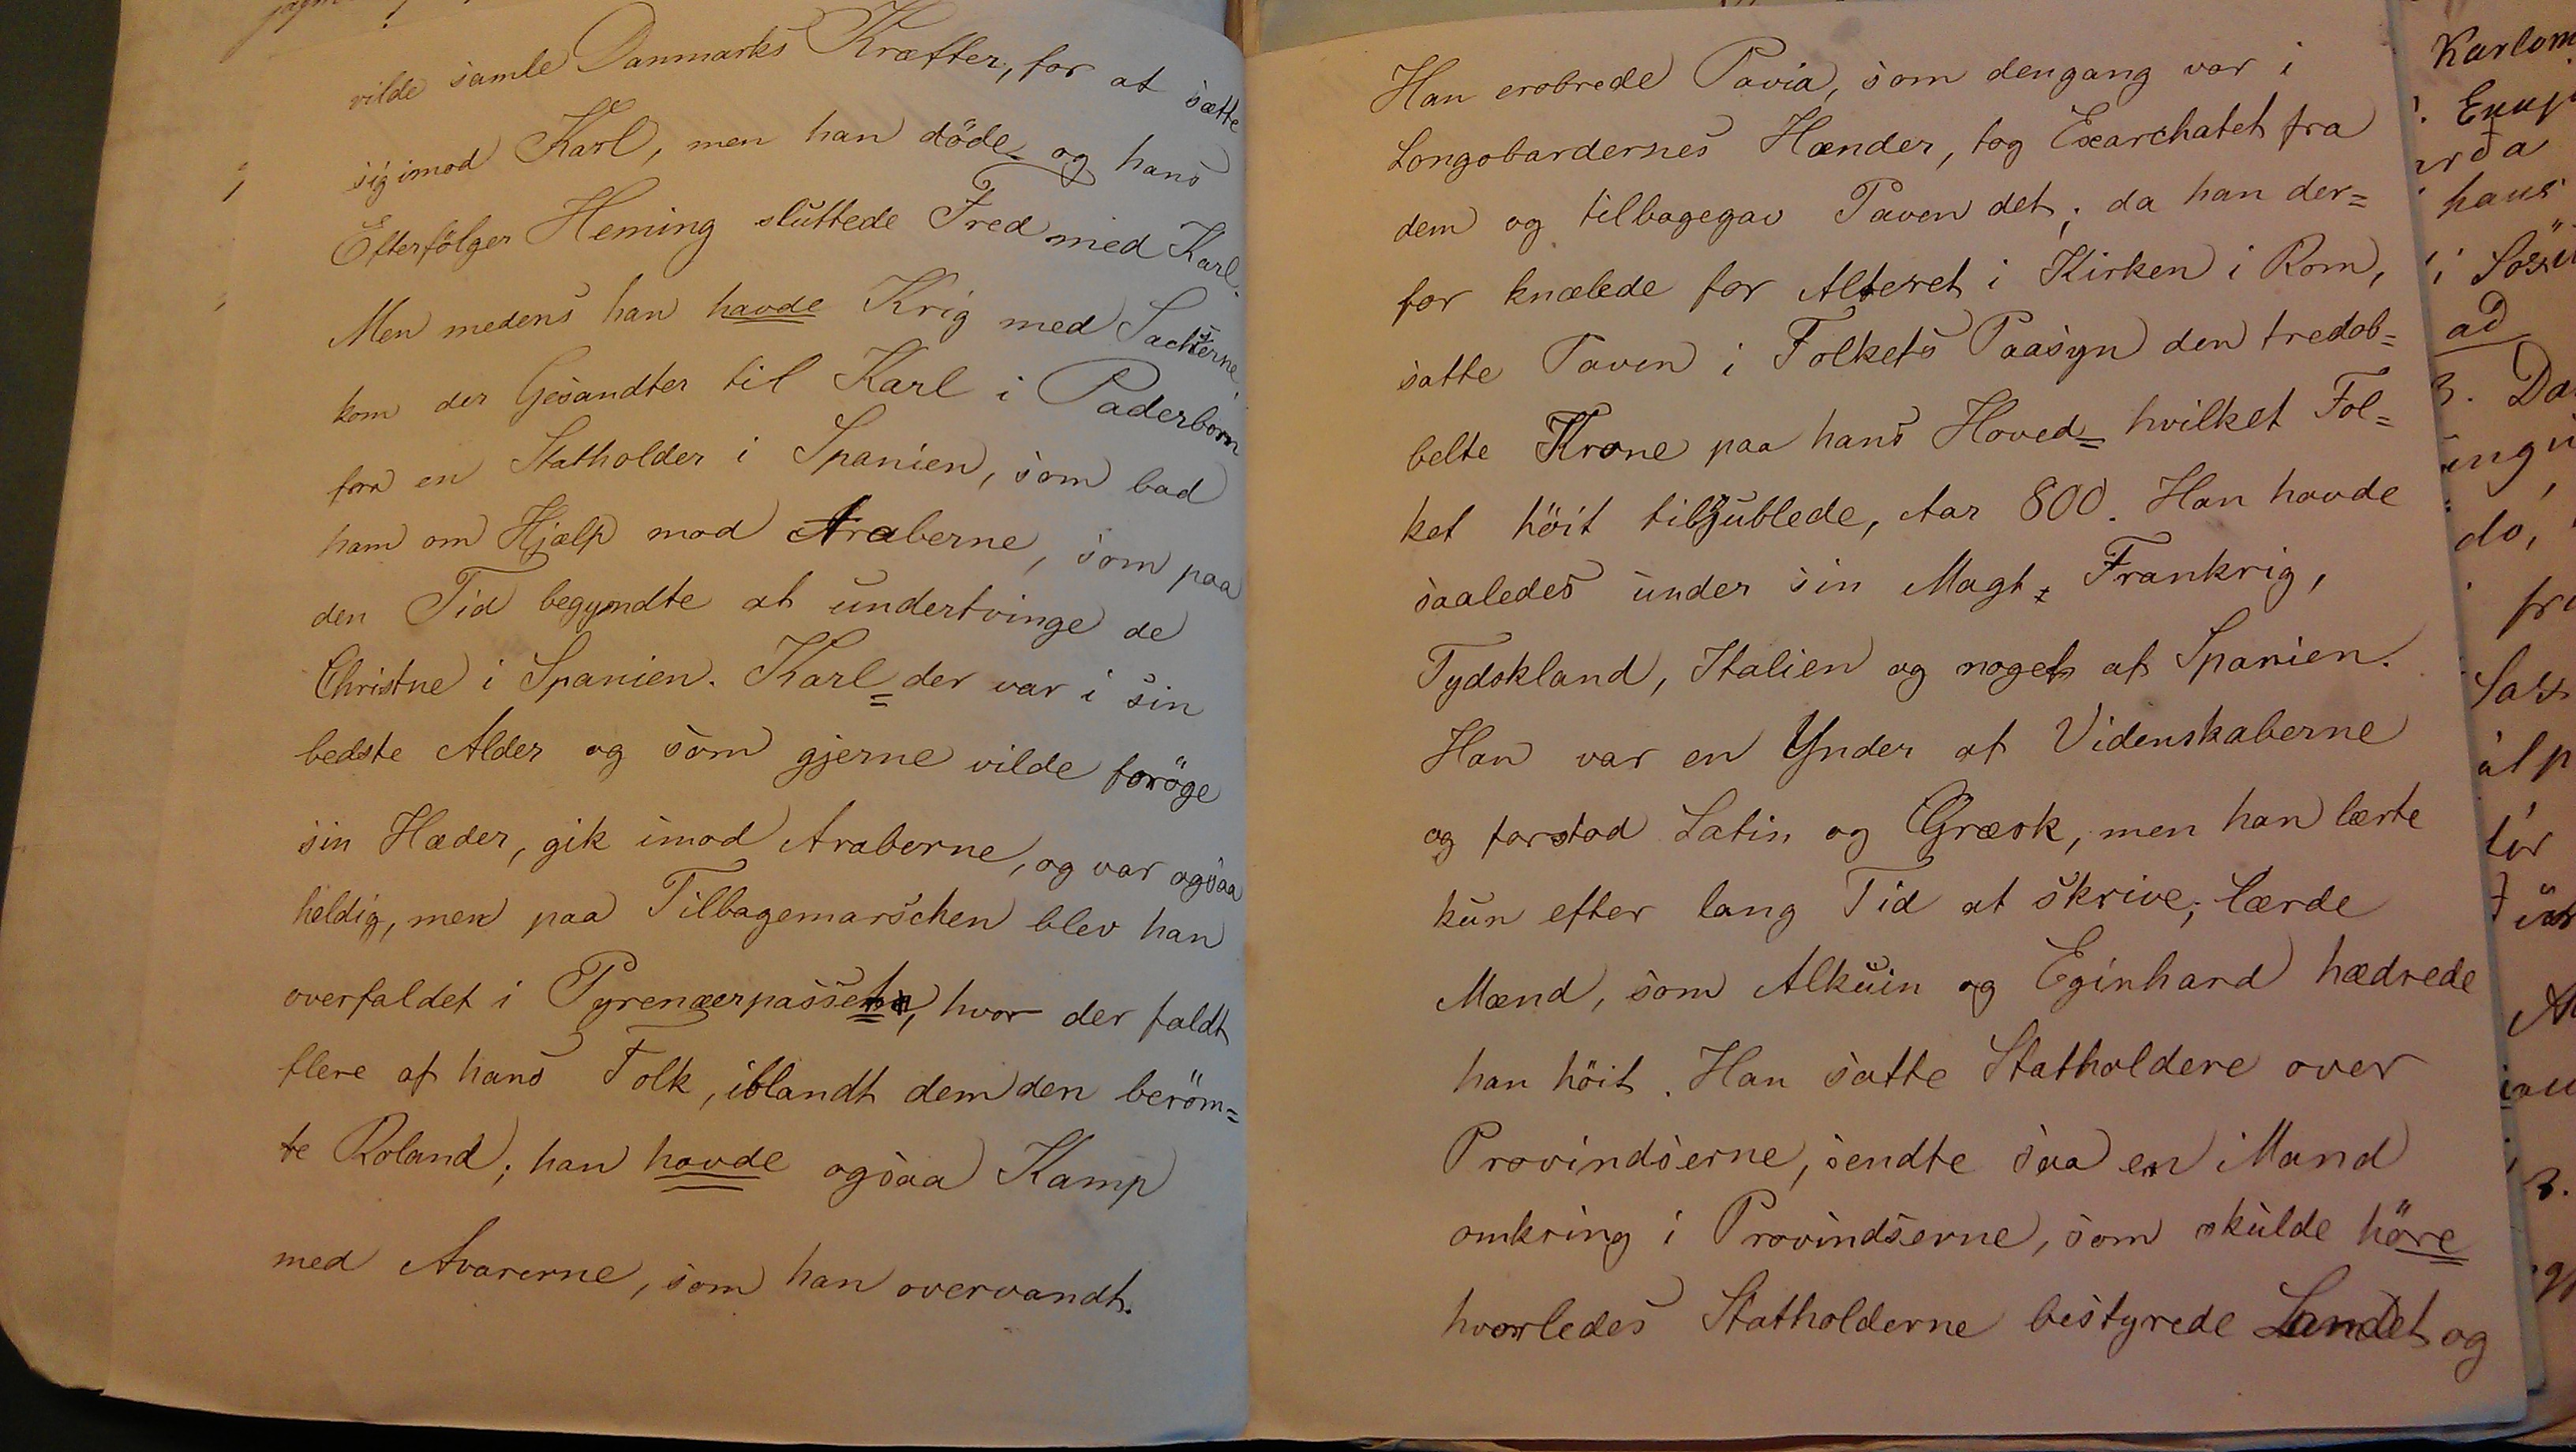 vilde samle Danmarks Kræfter, for at sætte
sig imod Karl, men han döde og hans
Efterfölger Heming sluttede Fred med Karl.
Men medens han havde Krig med Sachserne,
kom der Gesandter til Karl i Paderborn
fra en Statholder i Spanien, som bad
ham om Hjælp mod Araberne, som paa
den Tid begyndte at undertvinge de
Christne i Spanien. Karl der var i sin
bedste Alder og som gjerne vilde foröge
sin Hæder, gik imod Araberne, og var ogsaa
heldig, men paa Tilbagemarschen blev han
overfaldet i Pyrenæerpasset, hvor der faldt
flere af hans Folk, iblandt dem den beröm=
te Roland; han havde ogsaa Kamp
med Avarerne, som han overvandt.
Han erobrede Pavia, som dengang var i
Longobardernes Hænder, tog Exarchatet fra
dem og tilbagegav Paven det; da han der=
for knælede for Alteret i Kirken i Rom,
satte Paven i Folkets Paasyn den tredob=
belte Krone paa hans Hoved hvilket Fol=
ket höit tiljublede, Aar 800. Han havde
saaledes under sin Magt: Frankrig,
Tydskland, Italien og noget af Spanien.
Han var en Ynder af Videnskaberne
og forstod Latin og Græsk, men han lærte
kun efter lang Tid at skrive; lærde
Mænd, som Alkuin og Eginhard hædrede
han höit. Han satte Statholdere over
Provindserne, sendte saa en Mand
omkring i Provindserne, som skulde höre
hvorledes Statholderne bestyrede Landet og